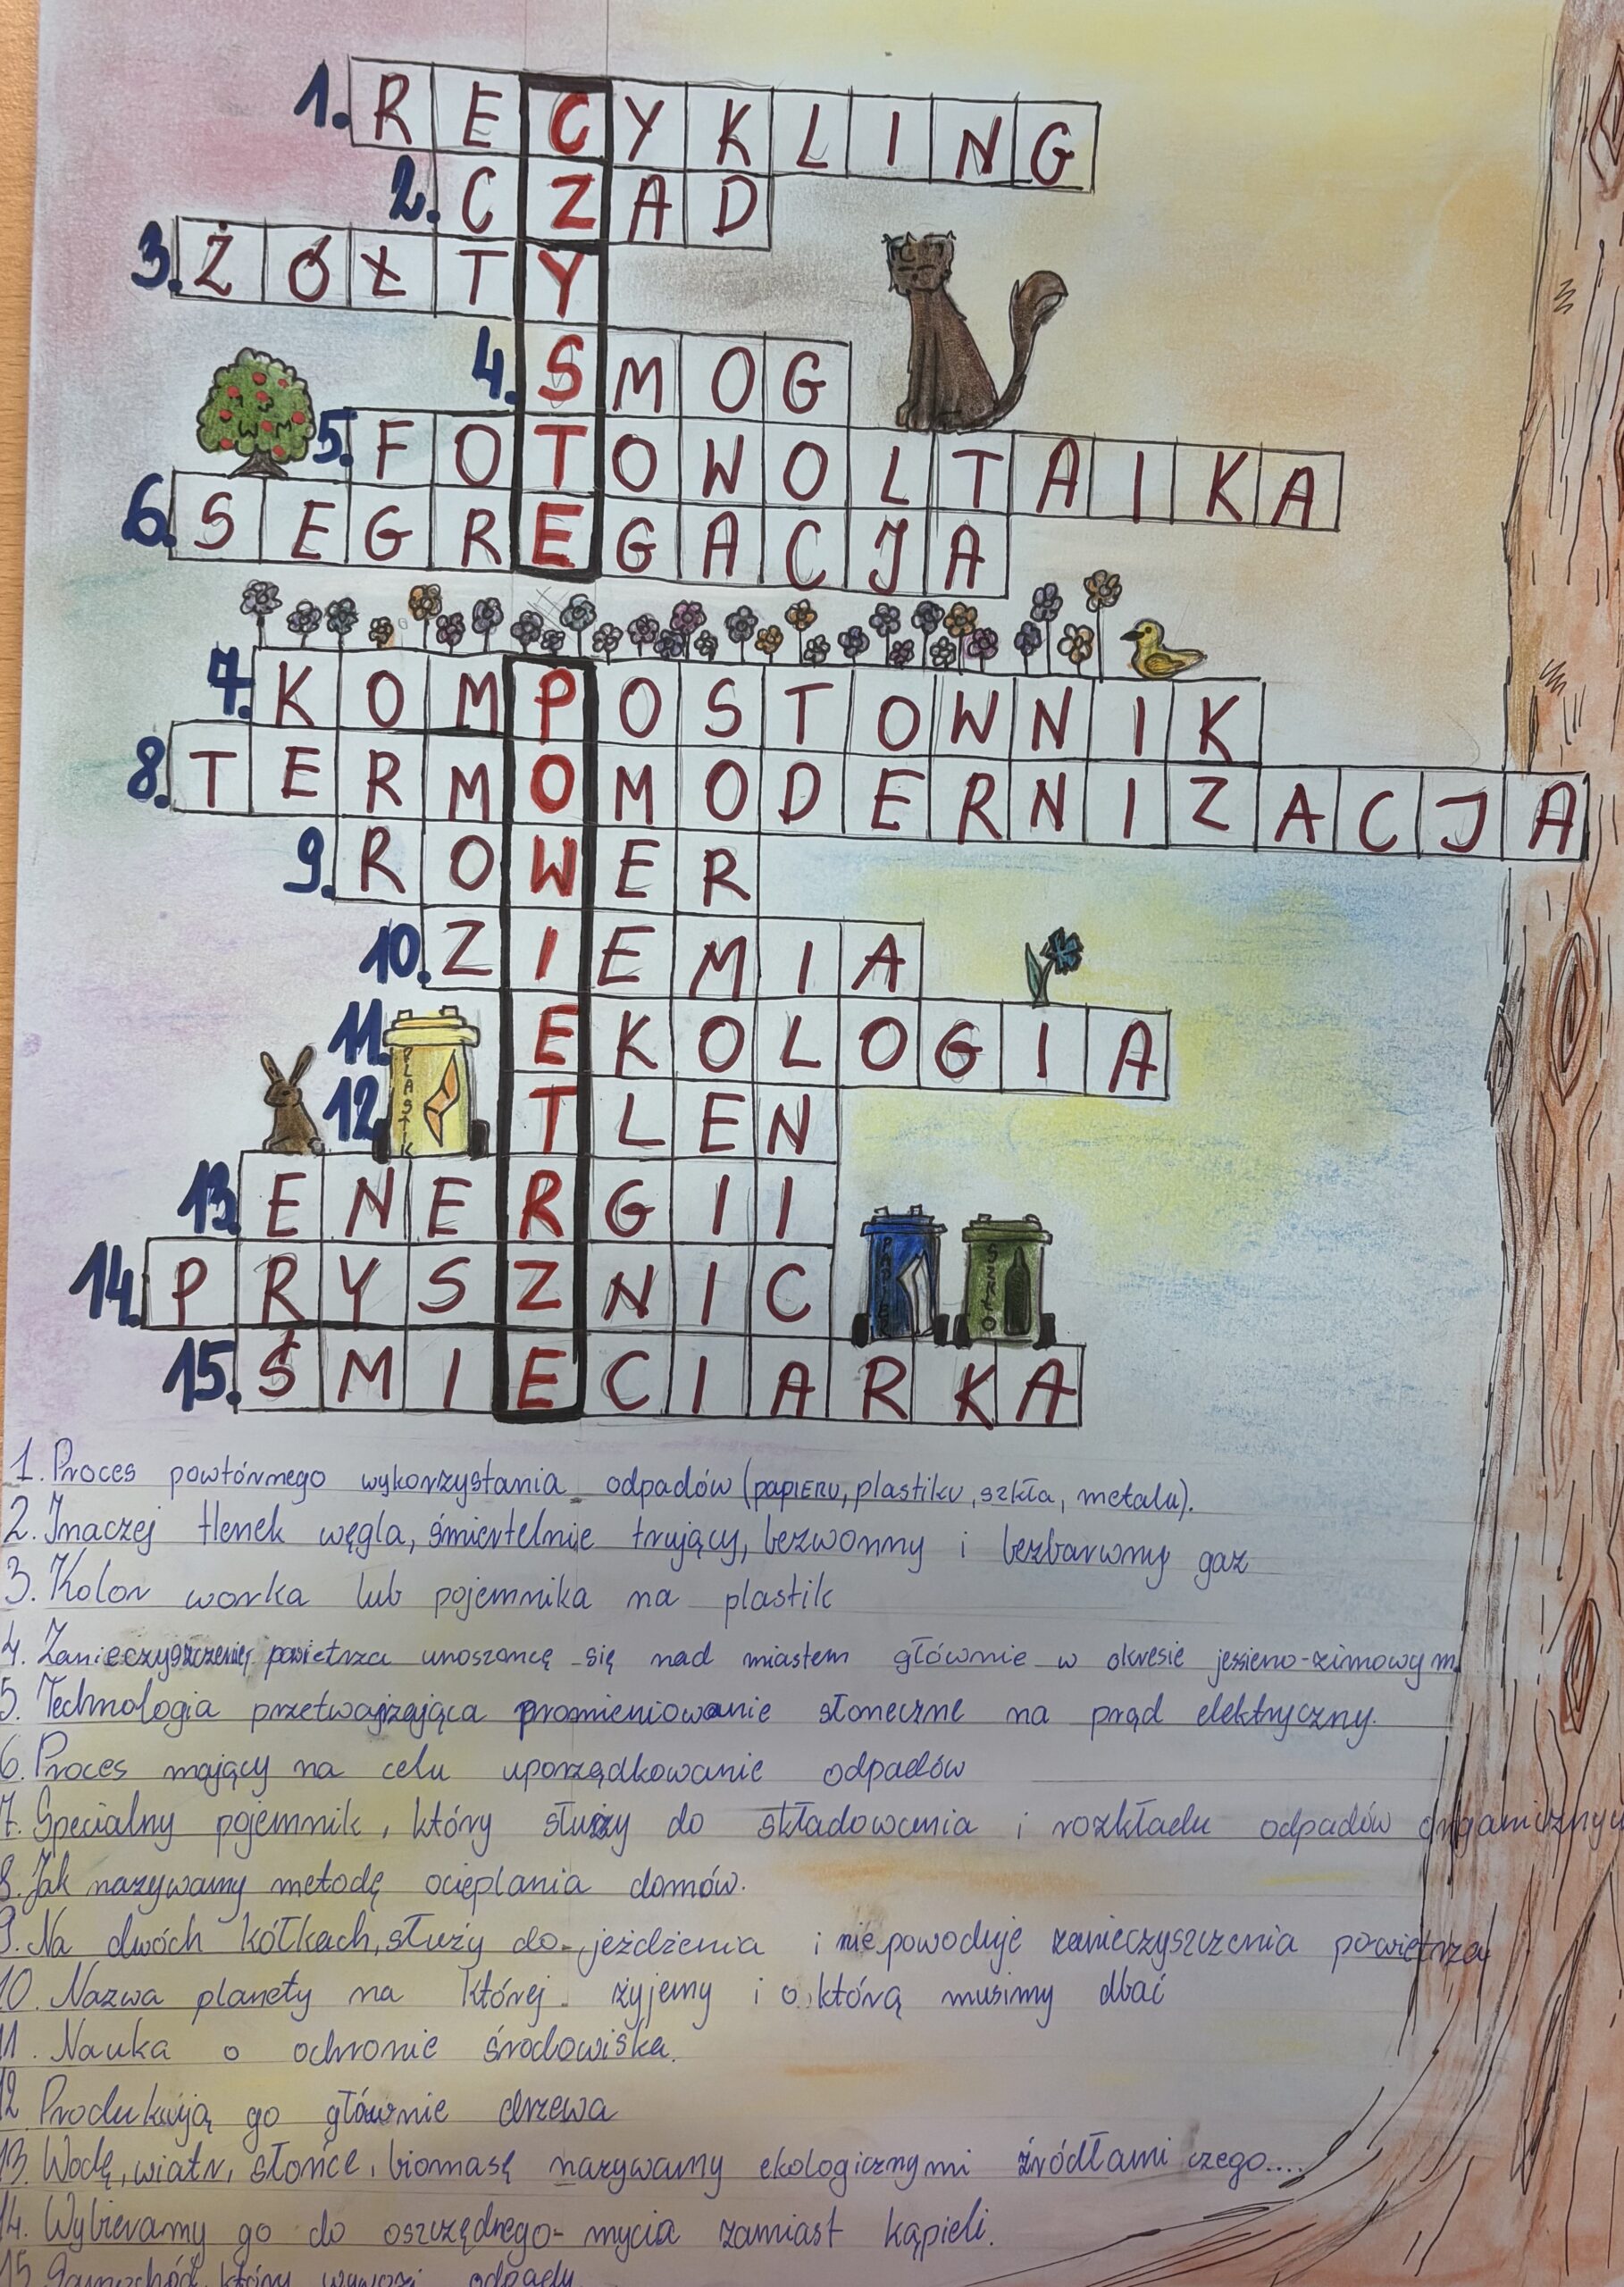 1. RECYKLING
2. CZAD
3. ŻÓŁTY
4. SMOG
5. FOTOWOLTAIKA
6. SEGREGACJA
7. KOMPOSTOWNIK
8. TERMOMODERNIZACJA
9. ROWER
10. ZIEMIA
11. EKOLOGIA
PLASTIK
12. TLEN
13. ENERGII
PAPIER
SZKŁO
14. PRYSZNIC
15. ŚMIECIARKA
1. Proces powtórnego wykorzystania odpadów (papieru, plastiku, szkła, metalu).
2. Inaczej tlenek węgla, śmiertelnie trujący, bezwonny i bezbarwny gaz
3. Kolor worka lub pojemnika na plastik
4. powietrza unoszące się nad miastem głównie w okresie jesieno-zimowym
5. Technologia promieniowanie słoneczne na prąd elektryczny.
6. Proces mający na celu uporządkowanie odpadów
7. Specialny pojemnik, który służy do składowania i rozkładu odpadów
8. Jak nazywamy metodę ocieplania domów.
9. Na dwóch kółkach, służy do jeżdżenia i nie powoduje zanieczyszczenia powietrza
10. Nazwa planety na której żyjemy i o którą musimy dbać
11. Nauka o ochronie środowiska.
12 Produkują go głównie drzewa
13. Wodę, wiatr, słońce, biomasę nazywamy ekologicznymi źródłami czego....
14. Wybieramy go do oszczędnego mycia zamiast kąpieli.
15. Samochód, który wywozi odpady.